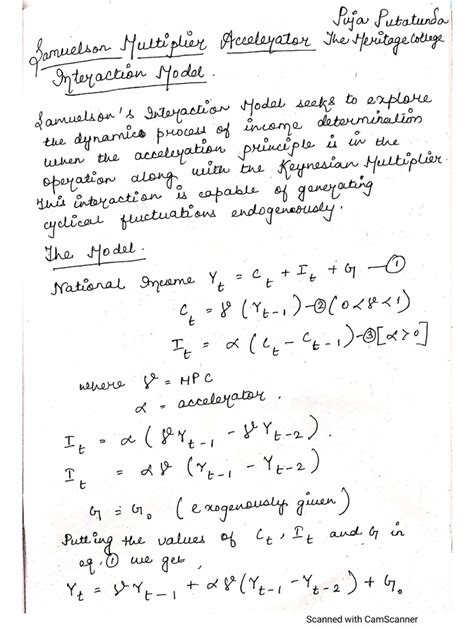 Puja Putatunda
Samuelson Multiplier Accelerator The Heritage College
Interaction Model.
Samuelson's Interaction Model seeks to explore
the dynamic process of income determination
when the acceleration principle is in the
operation along with the Keynesian Multiplier.
This interaction is capable of generating
cyclical fluctuations endogenously.
The Model.
National Income Y_t = C_t + I_t + G —①
C_t = γ (Y_{t-1}) —② (0<γ<1)
I_t = α (C_t - C_{t-1}) —③ [α>0]
where γ = MPC
α = accelerator.
I_t = α (γY_{t-1} - γY_{t-2}).
I_t = αγ (Y_{t-1} - Y_{t-2})
G = G_0 (exogenously given)
Putting the values of C_t, I_t and G in
eq. ① we get,
Y_t = γY_{t-1} + αγ(Y_{t-1} - Y_{t-2}) + G_0
Scanned with CamScanner